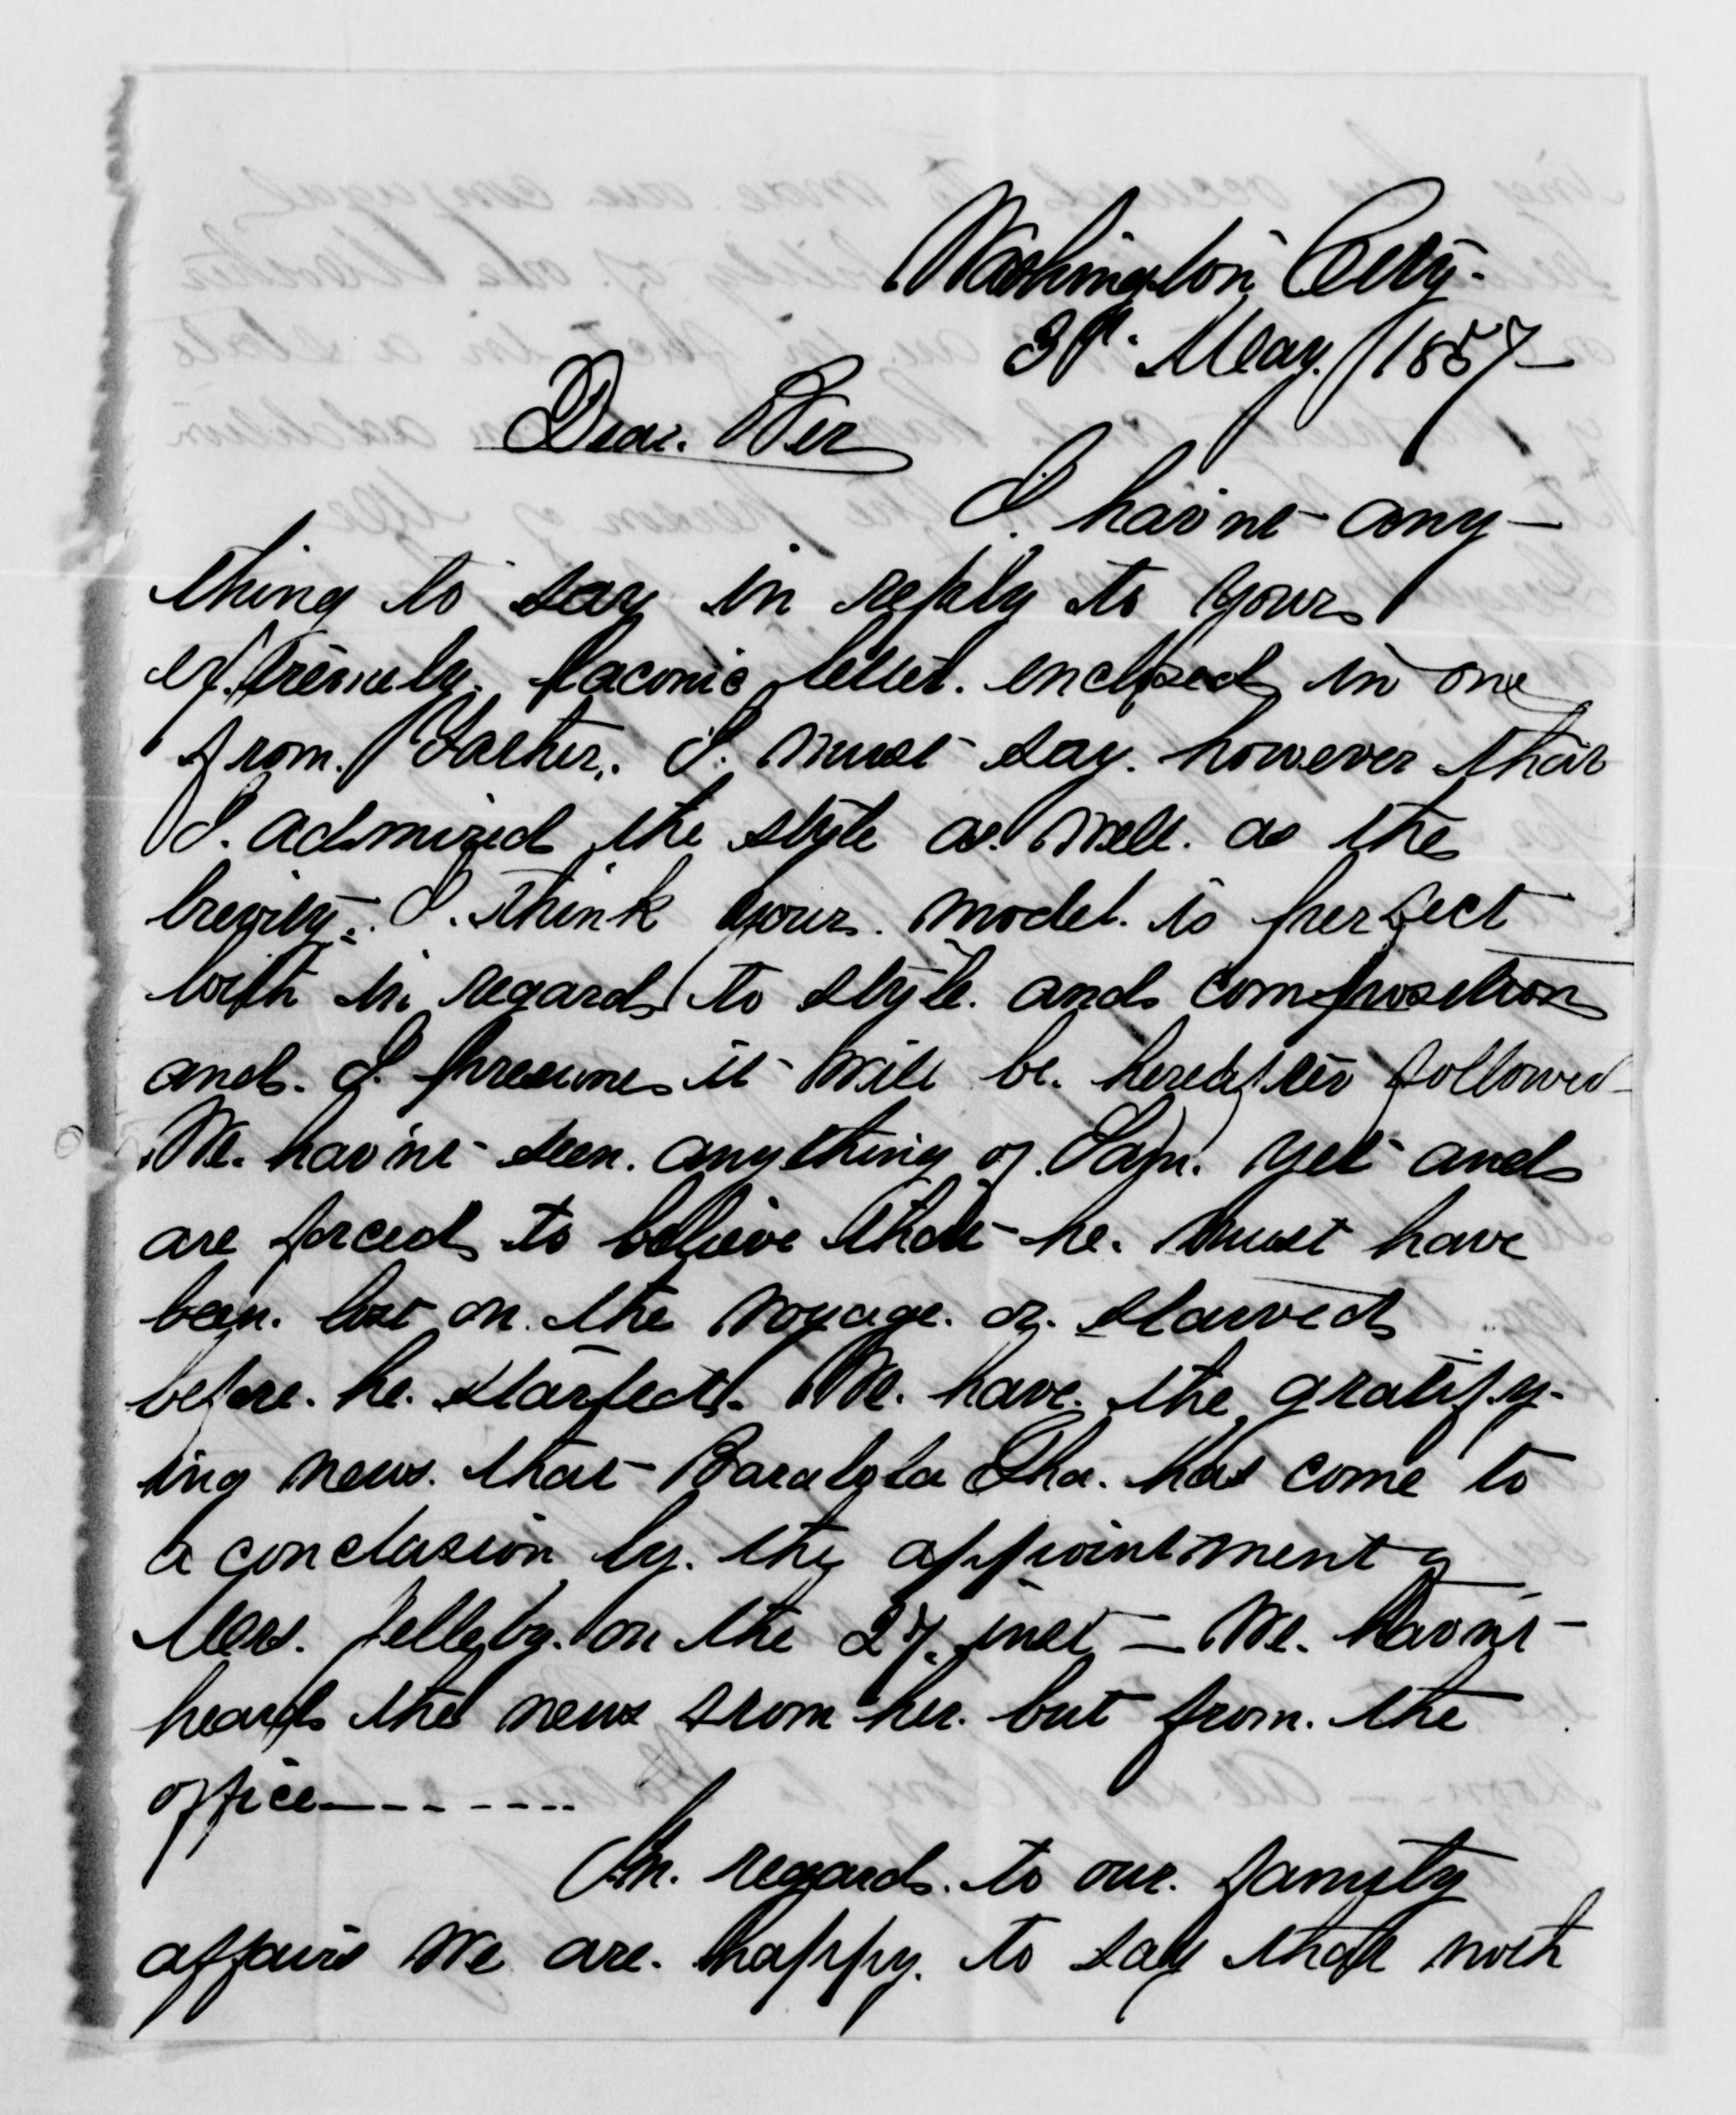 Washington City.
31st. May. 1857—
Dear. Sir
I. hav'nt any—
thing to say in reply to your
extremely. laconic letter. enclosed in one
from. Father. I. must say. however that
I. admired the style as. well. as the
brevity. I. think your. model. is perfect
both in regard to style. and composition
and. I. presume it will be. hereafter followed
We. hav'nt seen. anything of. Sam. yet and
are forced to believe that he. must have
been. lost on. the voyage. or. starved
before. he. started. We. have. the gratify-
ing news. that has come to
a conclusion by. the appointment of
Mrs. Jelleby. on the 27. inst — We. hav'nt
heard the news from her. but from. the
office— - - - - - -
In. regard. to our. family
affairs we are. happy. to say that noth